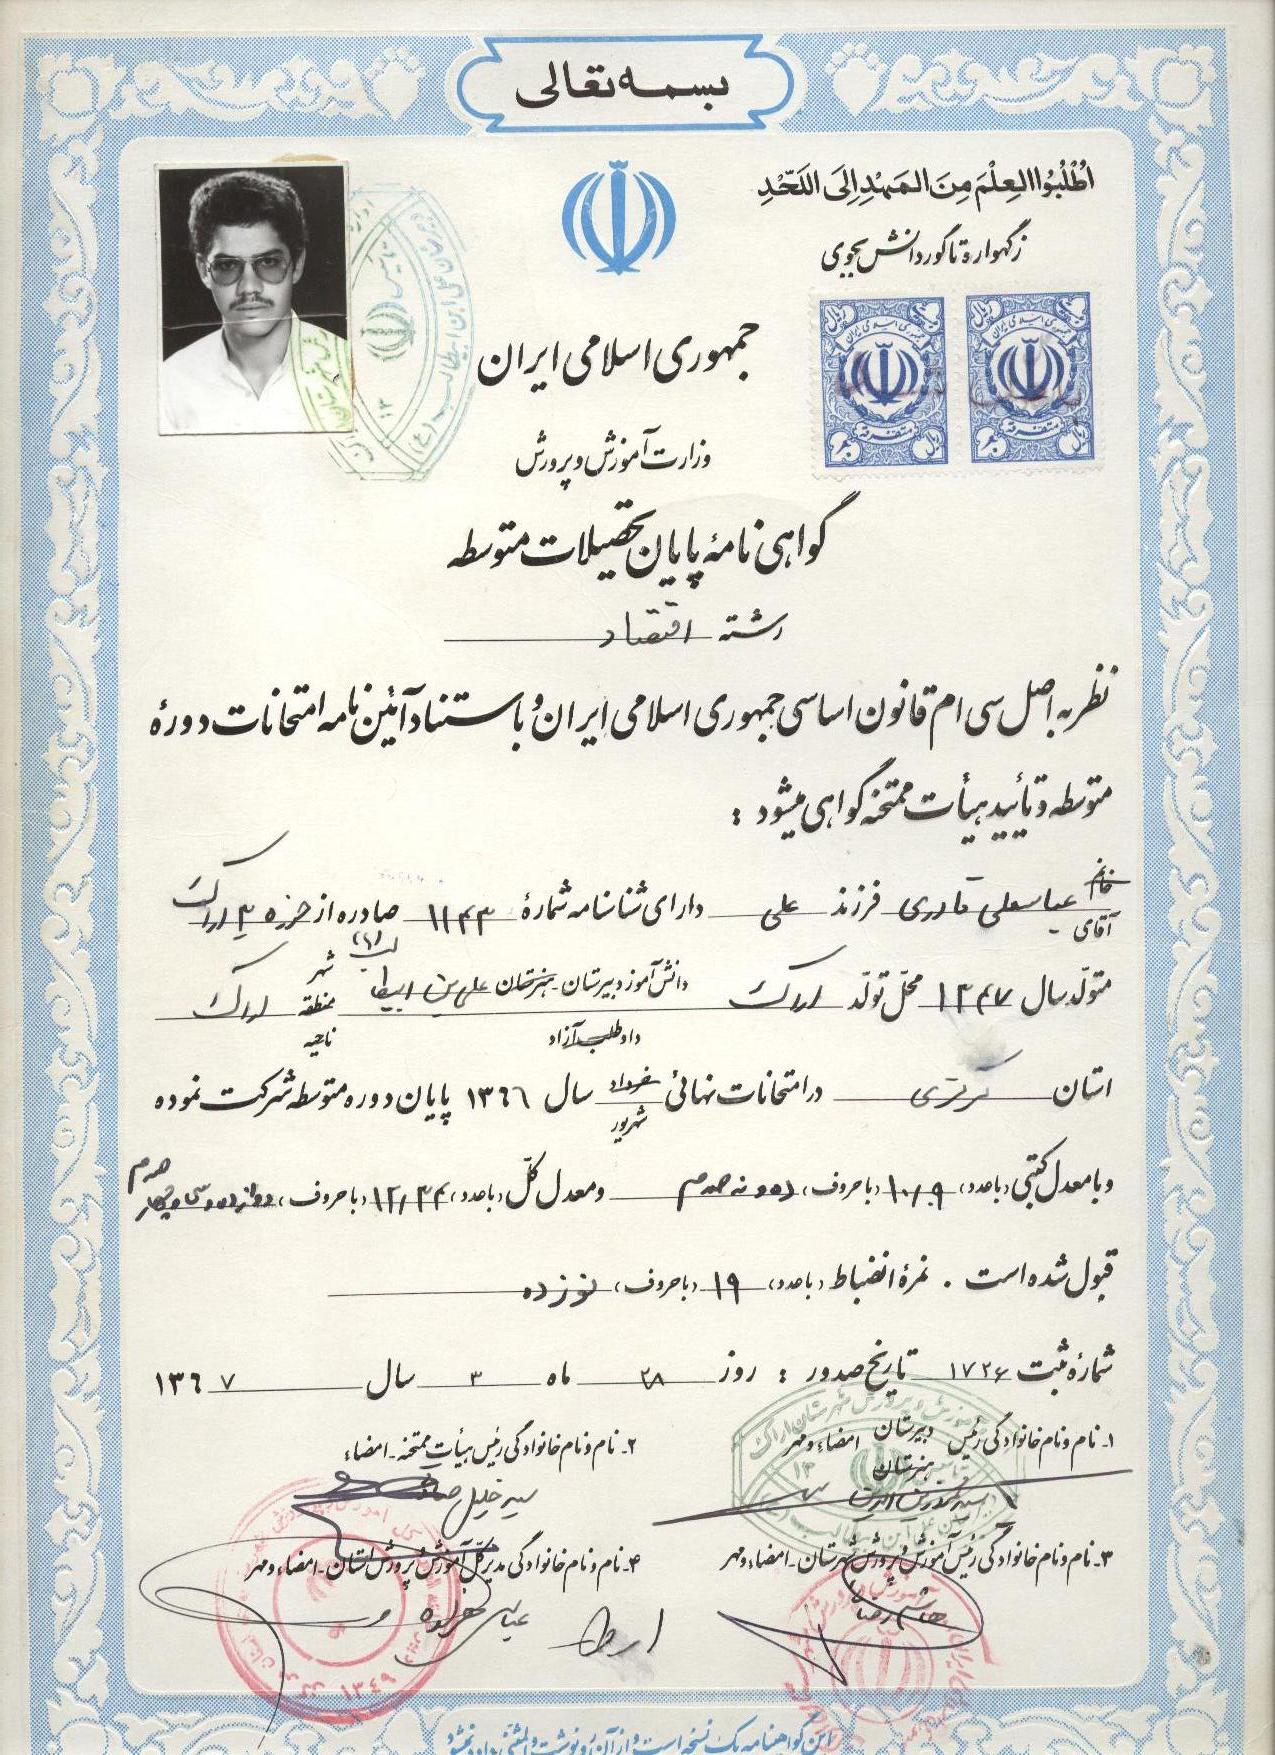 بسمه تعالی
اُطْلُبُوا العِلْمَ مِنَ المَهْدِ إلَی اللَّحْدِ
زگهواره تا گور دانش بجوی
جمهوری اسلامی ایران
وزارت آموزش و پرورش
گواهی نامهٔ پایان تحصیلات متوسطه
رشته اقتصاد
نظر به اصل سی ام قانون اساسی جمهوری اسلامی ایران و با استناد آئین نامه امتحانات دورهٔ
متوسطه و تأیید هیأت ممتحنه گواهی میشود :
خانم
آقای عباسعلی قادری فرزند علی دارای شناسنامه شمارهٔ ۱۱۴۳ صادره از حوزه ۴ اراک
متولّد سال ۱۳۴۷ محلّ تولّد اراک دانش آموز دبیرستان - هنرستان علی بن ابیطالب (۱) شهر منطقه ناحیه اراک
داوطلب آزاد
استان مرکزی در امتحانات نهائی خرداد شهریور سال ۱۳۶۶ پایان دوره متوسطه شرکت نموده
و با معدل کتبی (با عدد) ۱۰/۰۹ (با حروف) ده و نه صدم و معدل کلّ (با عدد) ۱۲/۳۴ (با حروف) دوازده و سی و چهار صدم
قبول شده است . نمرهٔ انضباط (با عدد) ۱۹ (با حروف) نوزده
شمارهٔ ثبت ۱۷۲۶ تاریخ صدور : روز ۲۸ ماه ۳ سال ۱۳۶۷
۱- نام و نام خانوادگی رئیس دبیرستان هنرستان امضاء و مهر
۲- نام و نام خانوادگی رئیس هیأت ممتحنه - امضاء
سید خلیل
۳- نام و نام خانوادگی رئیس آموزش و پرورش شهرستان - امضاء و مهر
۴- نام و نام خانوادگی مدیر کل آموزش و پرورش استان - امضاء و مهر
این گواهینامه یک نسخه است و از آن رونوشت و المثنی داده نمیشود